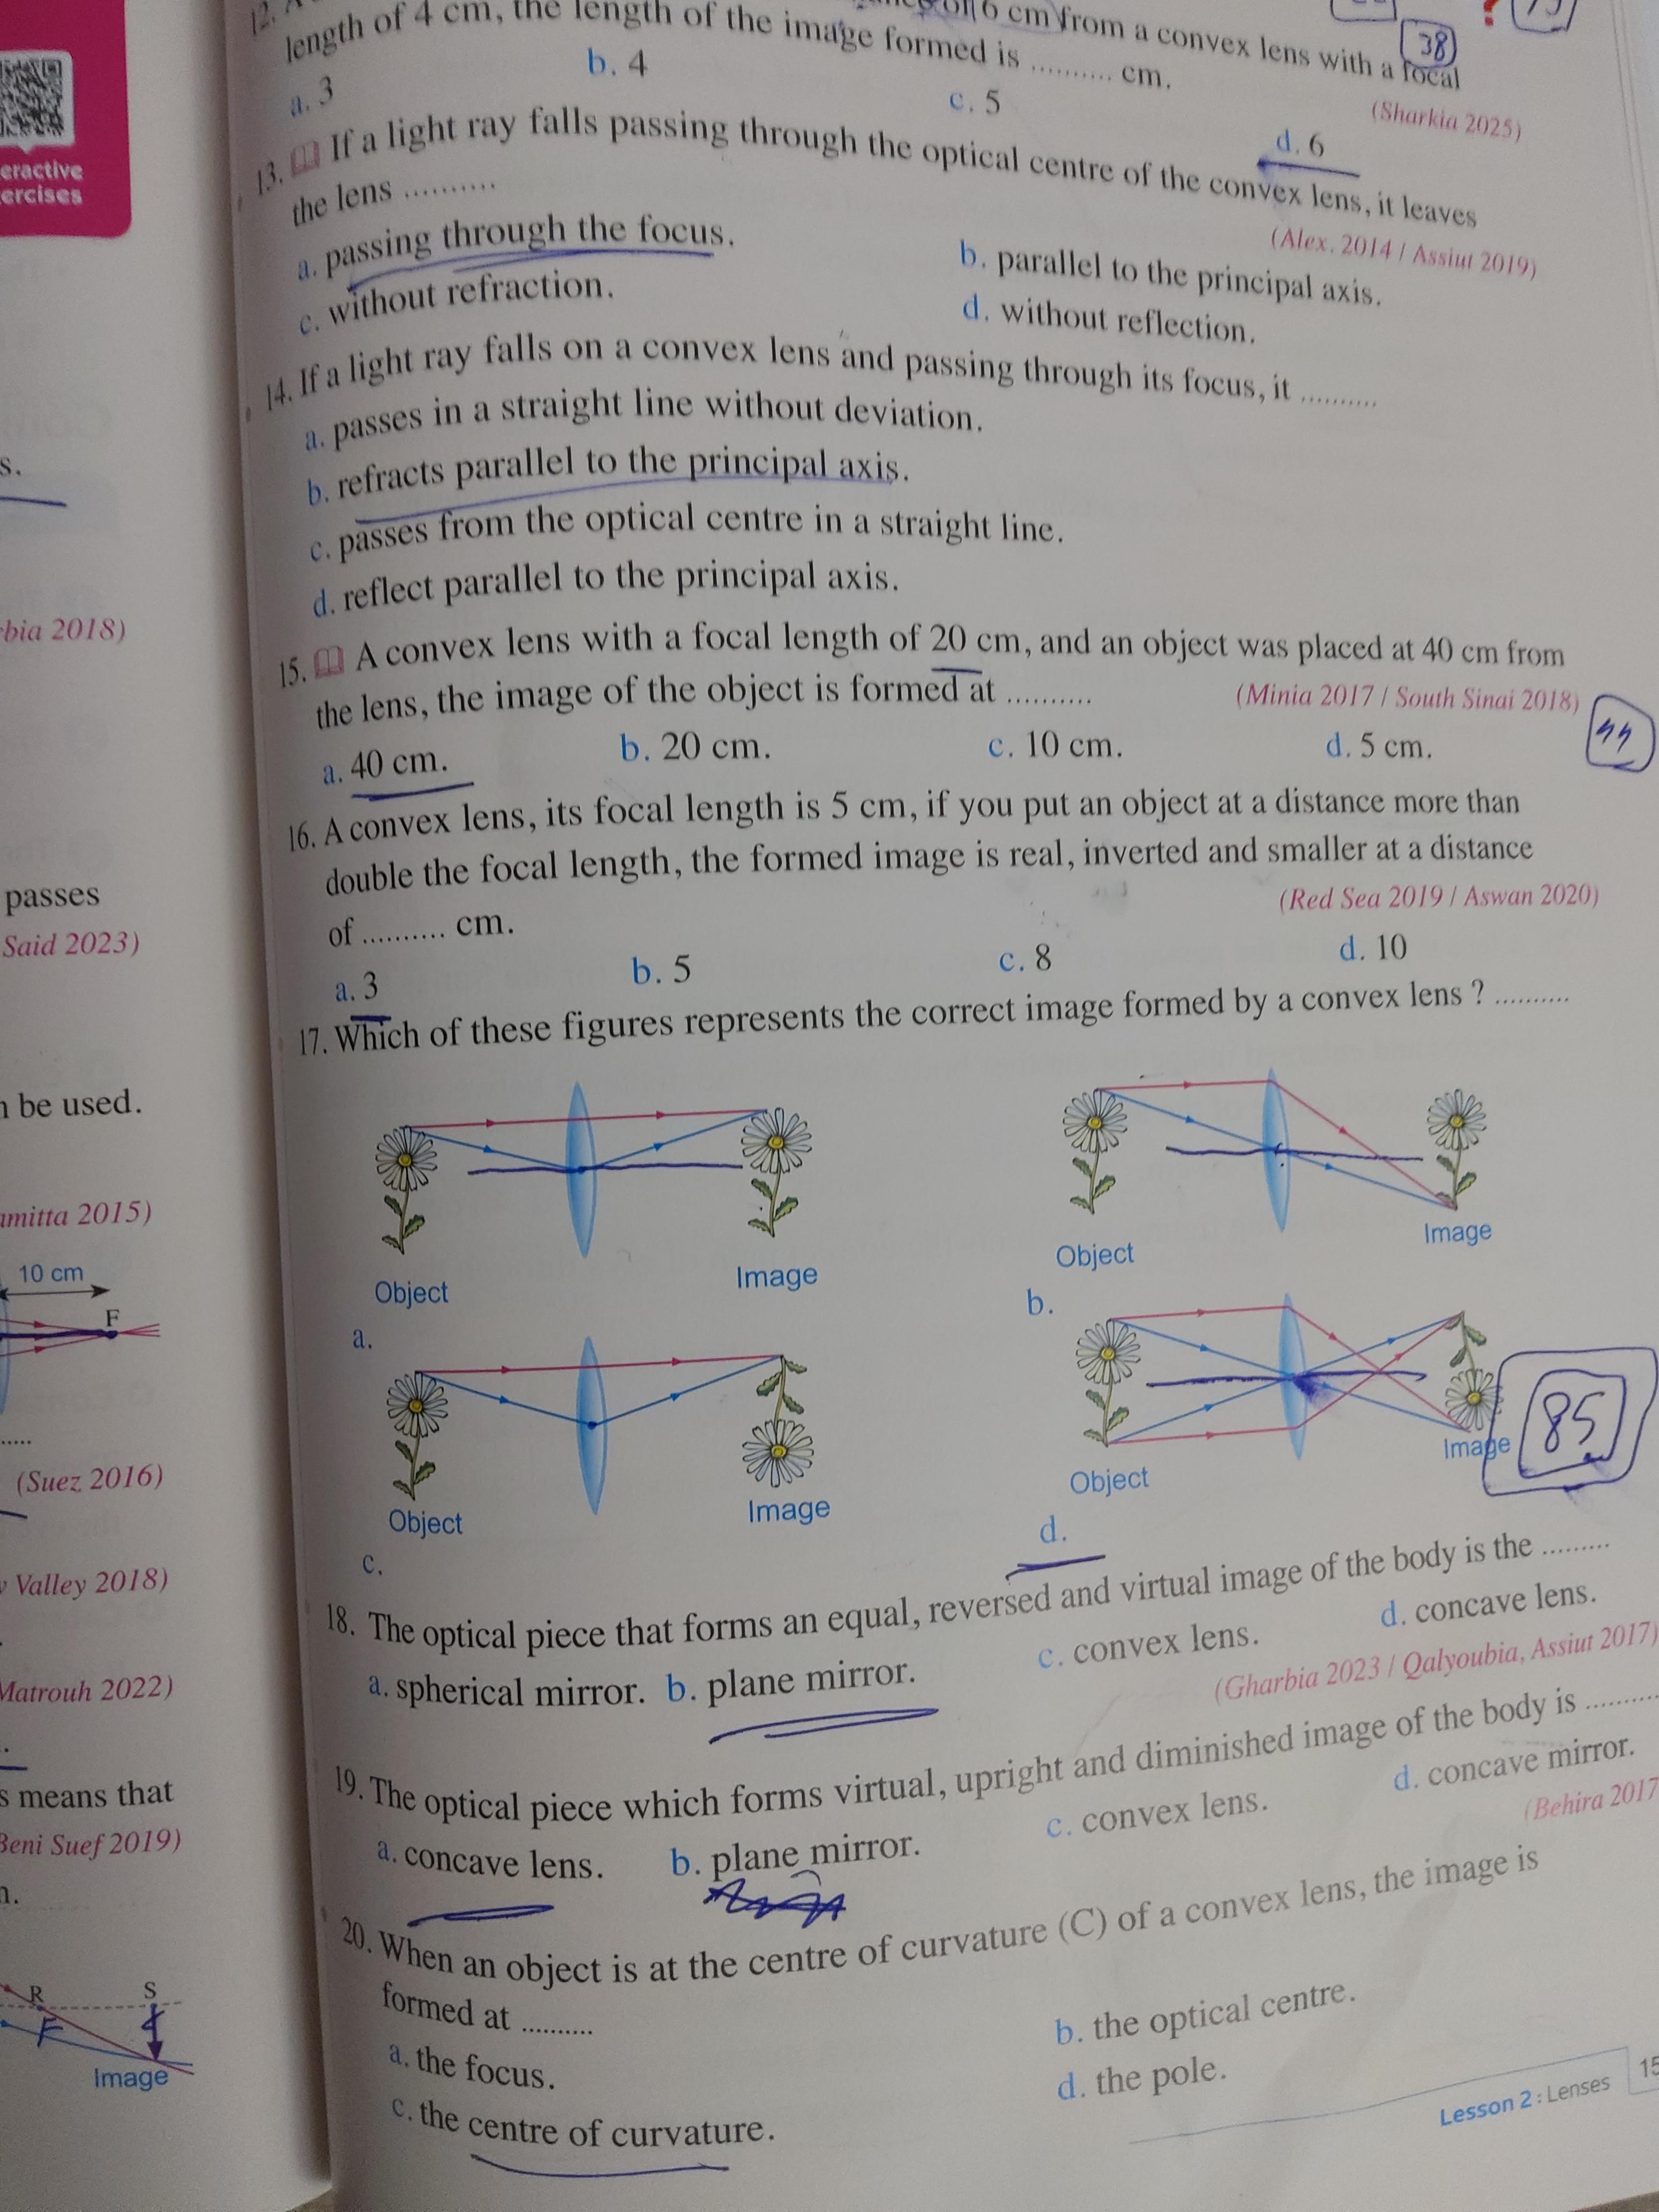 eractive
ercises
s.
rbia 2018)
passes
Said 2023)
n be used.
amitta 2015)
10 cm
F
.....
(Suez 2016)
Valley 2018)
Matrouh 2022)
s means that
Beni Suef 2019)
n.
R
S
F
Image
12.
6 cm from a convex lens with a focal
length of 4 cm, the length of the image formed is .......... cm.
38
(Sharkia 2025)
a. 3
b. 4
c. 5
d. 6
13. If a light ray falls passing through the optical centre of the convex lens, it leaves
the lens ..........
(Alex. 2014 / Assiut 2019)
a. passing through the focus.
b. parallel to the principal axis.
c. without refraction.
d. without reflection.
14. If a light ray falls on a convex lens and passing through its focus, it ..........
a. passes in a straight line without deviation.
b. refracts parallel to the principal axis.
c. passes from the optical centre in a straight line.
d. reflect parallel to the principal axis.
15. A convex lens with a focal length of 20 cm, and an object was placed at 40 cm from
the lens, the image of the object is formed at ..........
(Minia 2017 / South Sinai 2018)
a. 40 cm.
b. 20 cm.
c. 10 cm.
d. 5 cm.
16. A convex lens, its focal length is 5 cm, if you put an object at a distance more than
double the focal length, the formed image is real, inverted and smaller at a distance
of .......... cm.
(Red Sea 2019 / Aswan 2020)
a. 3
b. 5
c. 8
d. 10
17. Which of these figures represents the correct image formed by a convex lens ? ..........
Object
Image
a.
Object
Image
b.
Object
Image
c.
Object
Image
d.
85
18. The optical piece that forms an equal, reversed and virtual image of the body is the .........
a. spherical mirror.
b. plane mirror.
c. convex lens.
d. concave lens.
(Gharbia 2023 / Qalyoubia, Assiut 2017)
19. The optical piece which forms virtual, upright and diminished image of the body is ..........
a. concave lens.
b. plane mirror.
c. convex lens.
d. concave mirror.
(Behira 2017
20. When an object is at the centre of curvature (C) of a convex lens, the image is
formed at ..........
a. the focus.
b. the optical centre.
c. the centre of curvature.
d. the pole.
Lesson 2 : Lenses
15